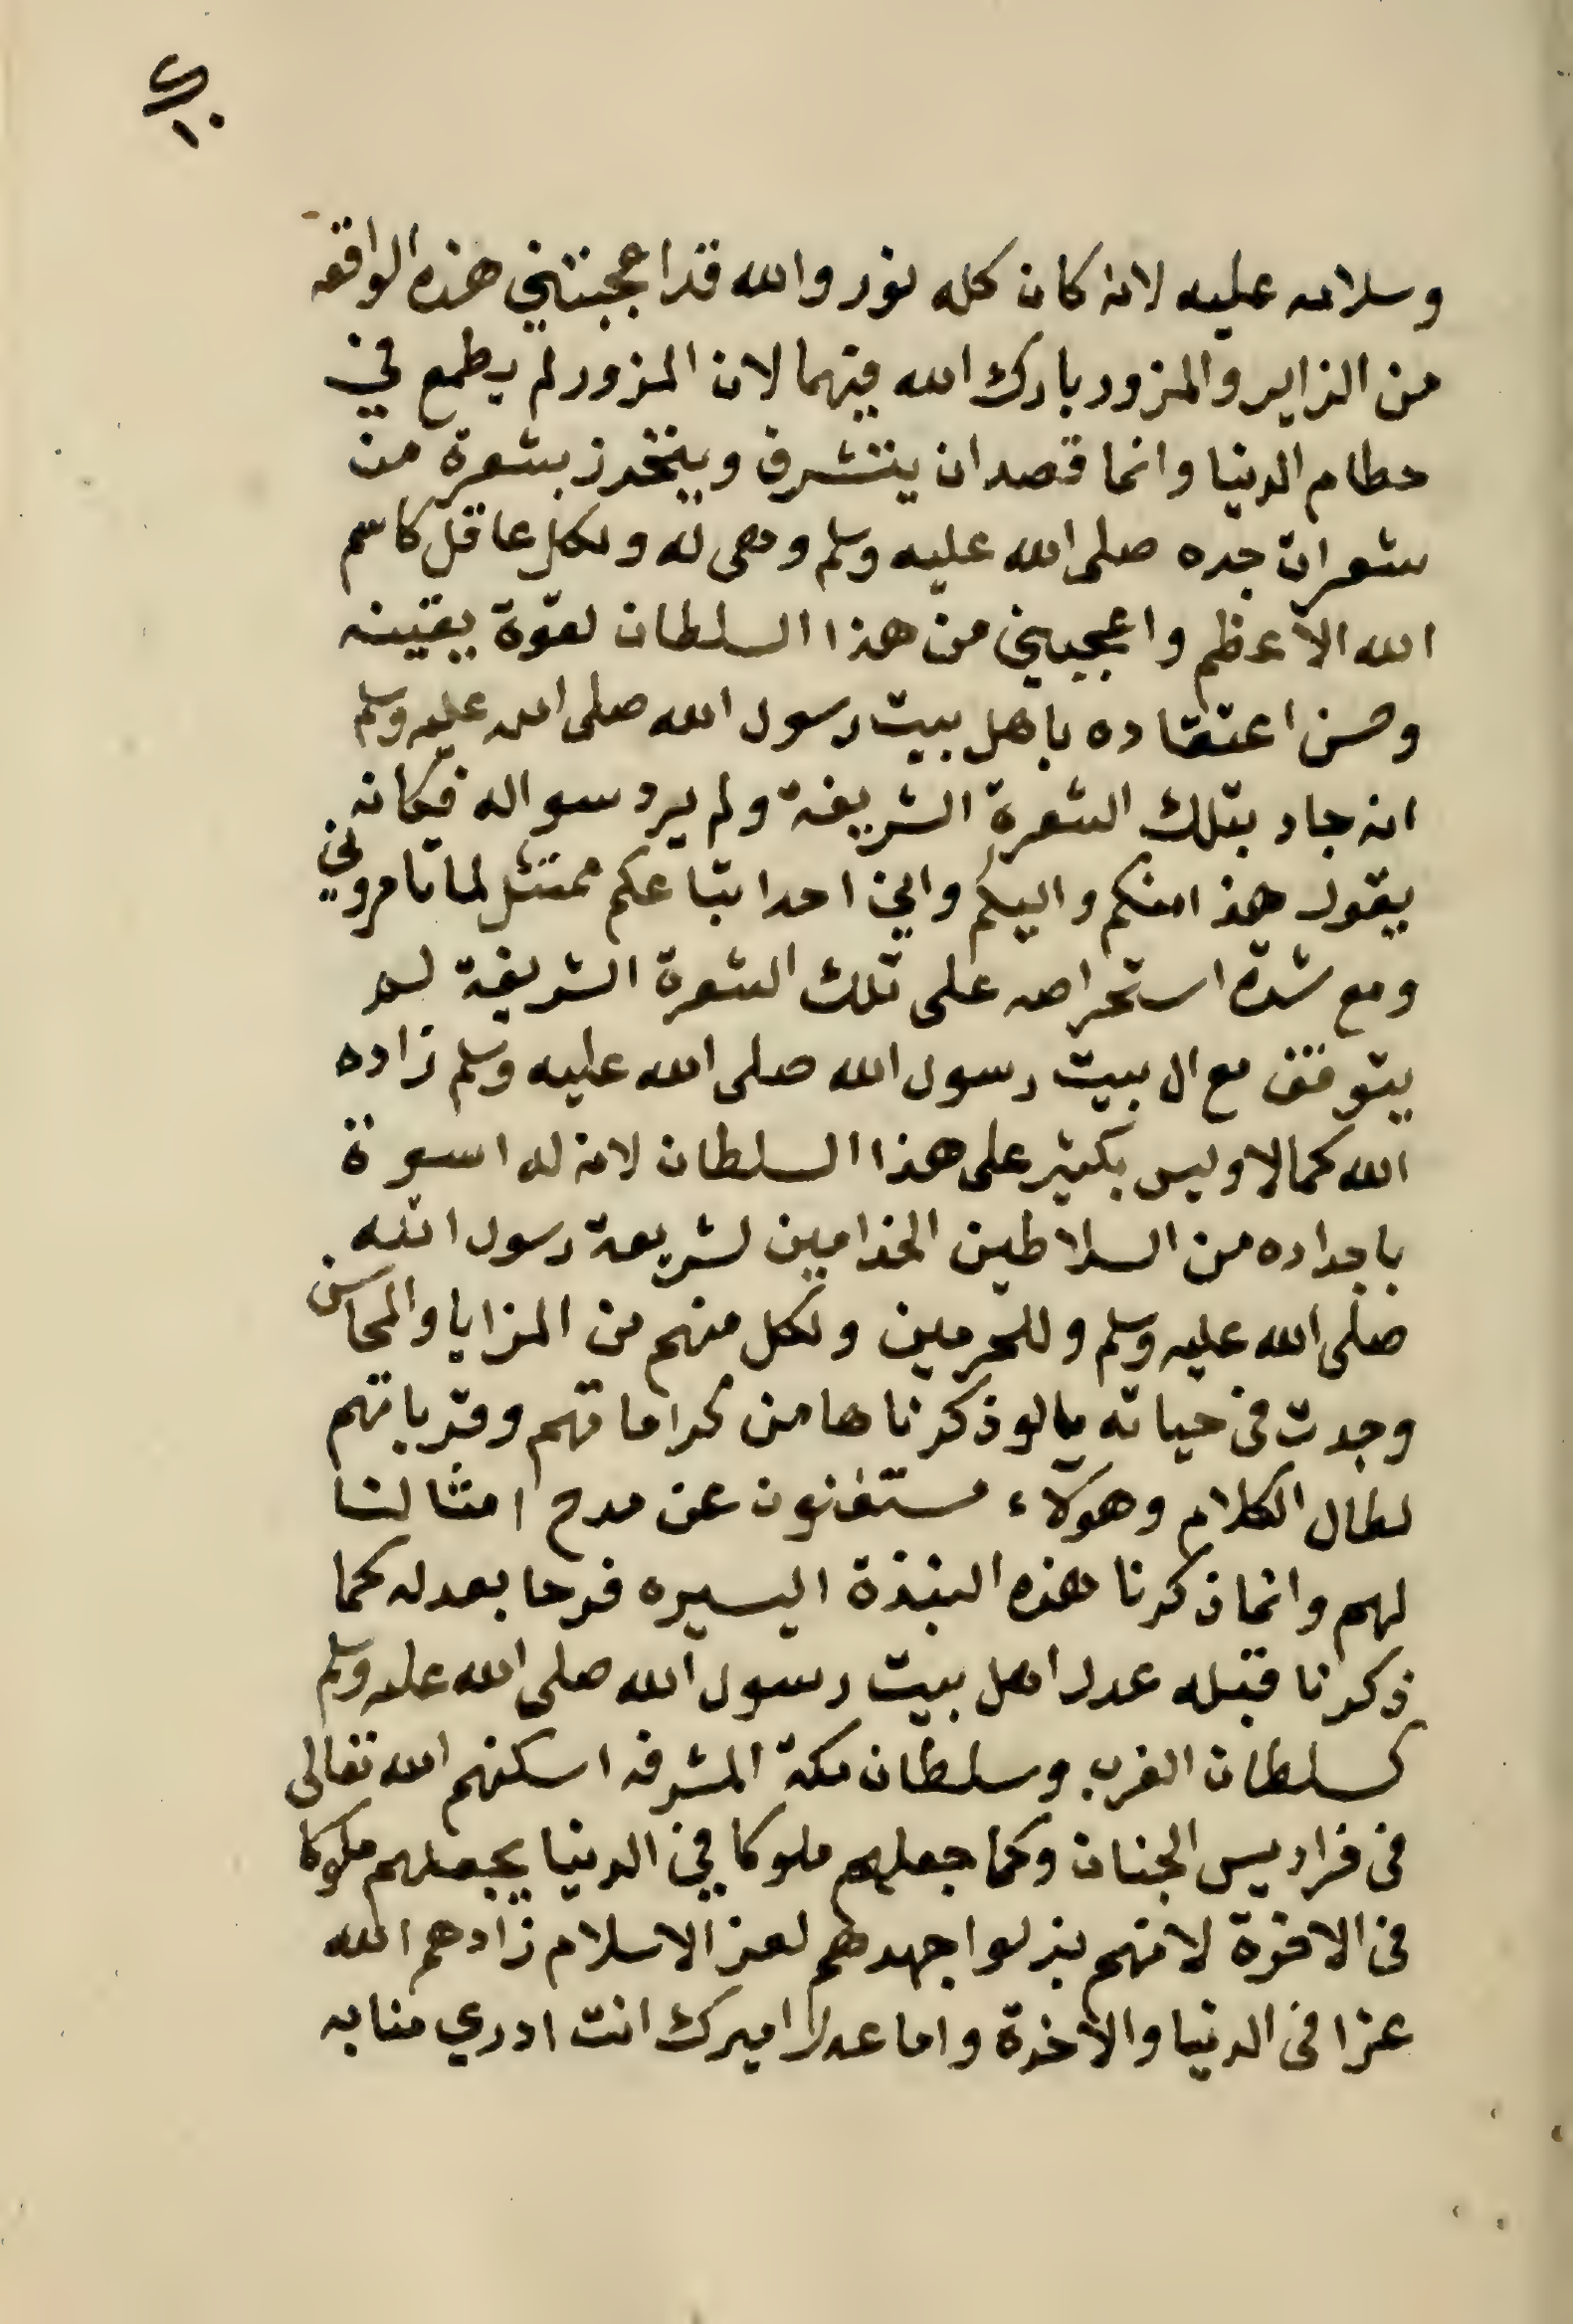 ص
١٠
وسلامه عليه لانه كان كله نور والله قد اعجبتني هذه الواقعه
من الزاير والمزور بارك الله فيهما لان المزور لم يطمع في
حطام الدنيا وانما قصد ان يتشرف ويتحرز بشعرة من
شعرات جده صلى الله عليه وسلم وهى له ولكل عاقل كاسم
الله الاعظم واعجبني من هذا السلطان لقوة يقينه
وحسن اعتقاده باهل بيت رسول الله صلى الله عليه وسلم
انه جاد بتلك الشعرة الشريفة ولم يرد سواله فكانه
يقول هذا منكم واليكم واني احد اتباعكم ممتثل لما تامروني
ومع شدة استحراصه على تلك الشعرة الشريفة لم
يتوقف مع ال بيت رسول الله صلى الله عليه وسلم زاده
الله كمالا وليس بكثير على هذا السلطان لانه له اسوة
باجداده من السلاطين الخدامين لشريعة رسول الله
صلى الله عليه وسلم وللحرمين ولكل منهم من المزايا والمحاسن
وجدت في حياته ما لو ذكرناها من كراماتهم وقرباتهم
لطال الكلام وهولآء مستغنون عن مدح امثالنا
لهم وانما ذكرنا هذه النبذة اليسيره فرحا بعدله كما
ذكرنا قبله عدل اهل بيت رسول الله صلى الله عليه وسلم
كسلطان الغرب وسلطان مكة المشرفه اسكنهم الله تعالى
في فراديس الجنان وكما جعلهم ملوكا في الدنيا يجعلهم ملوكا
في الاخرة لانهم بذلوا جهدهم لعز الاسلام زادهم الله
عزا في الدنيا والاخرة واما عدل اميرك انت ادري منا به